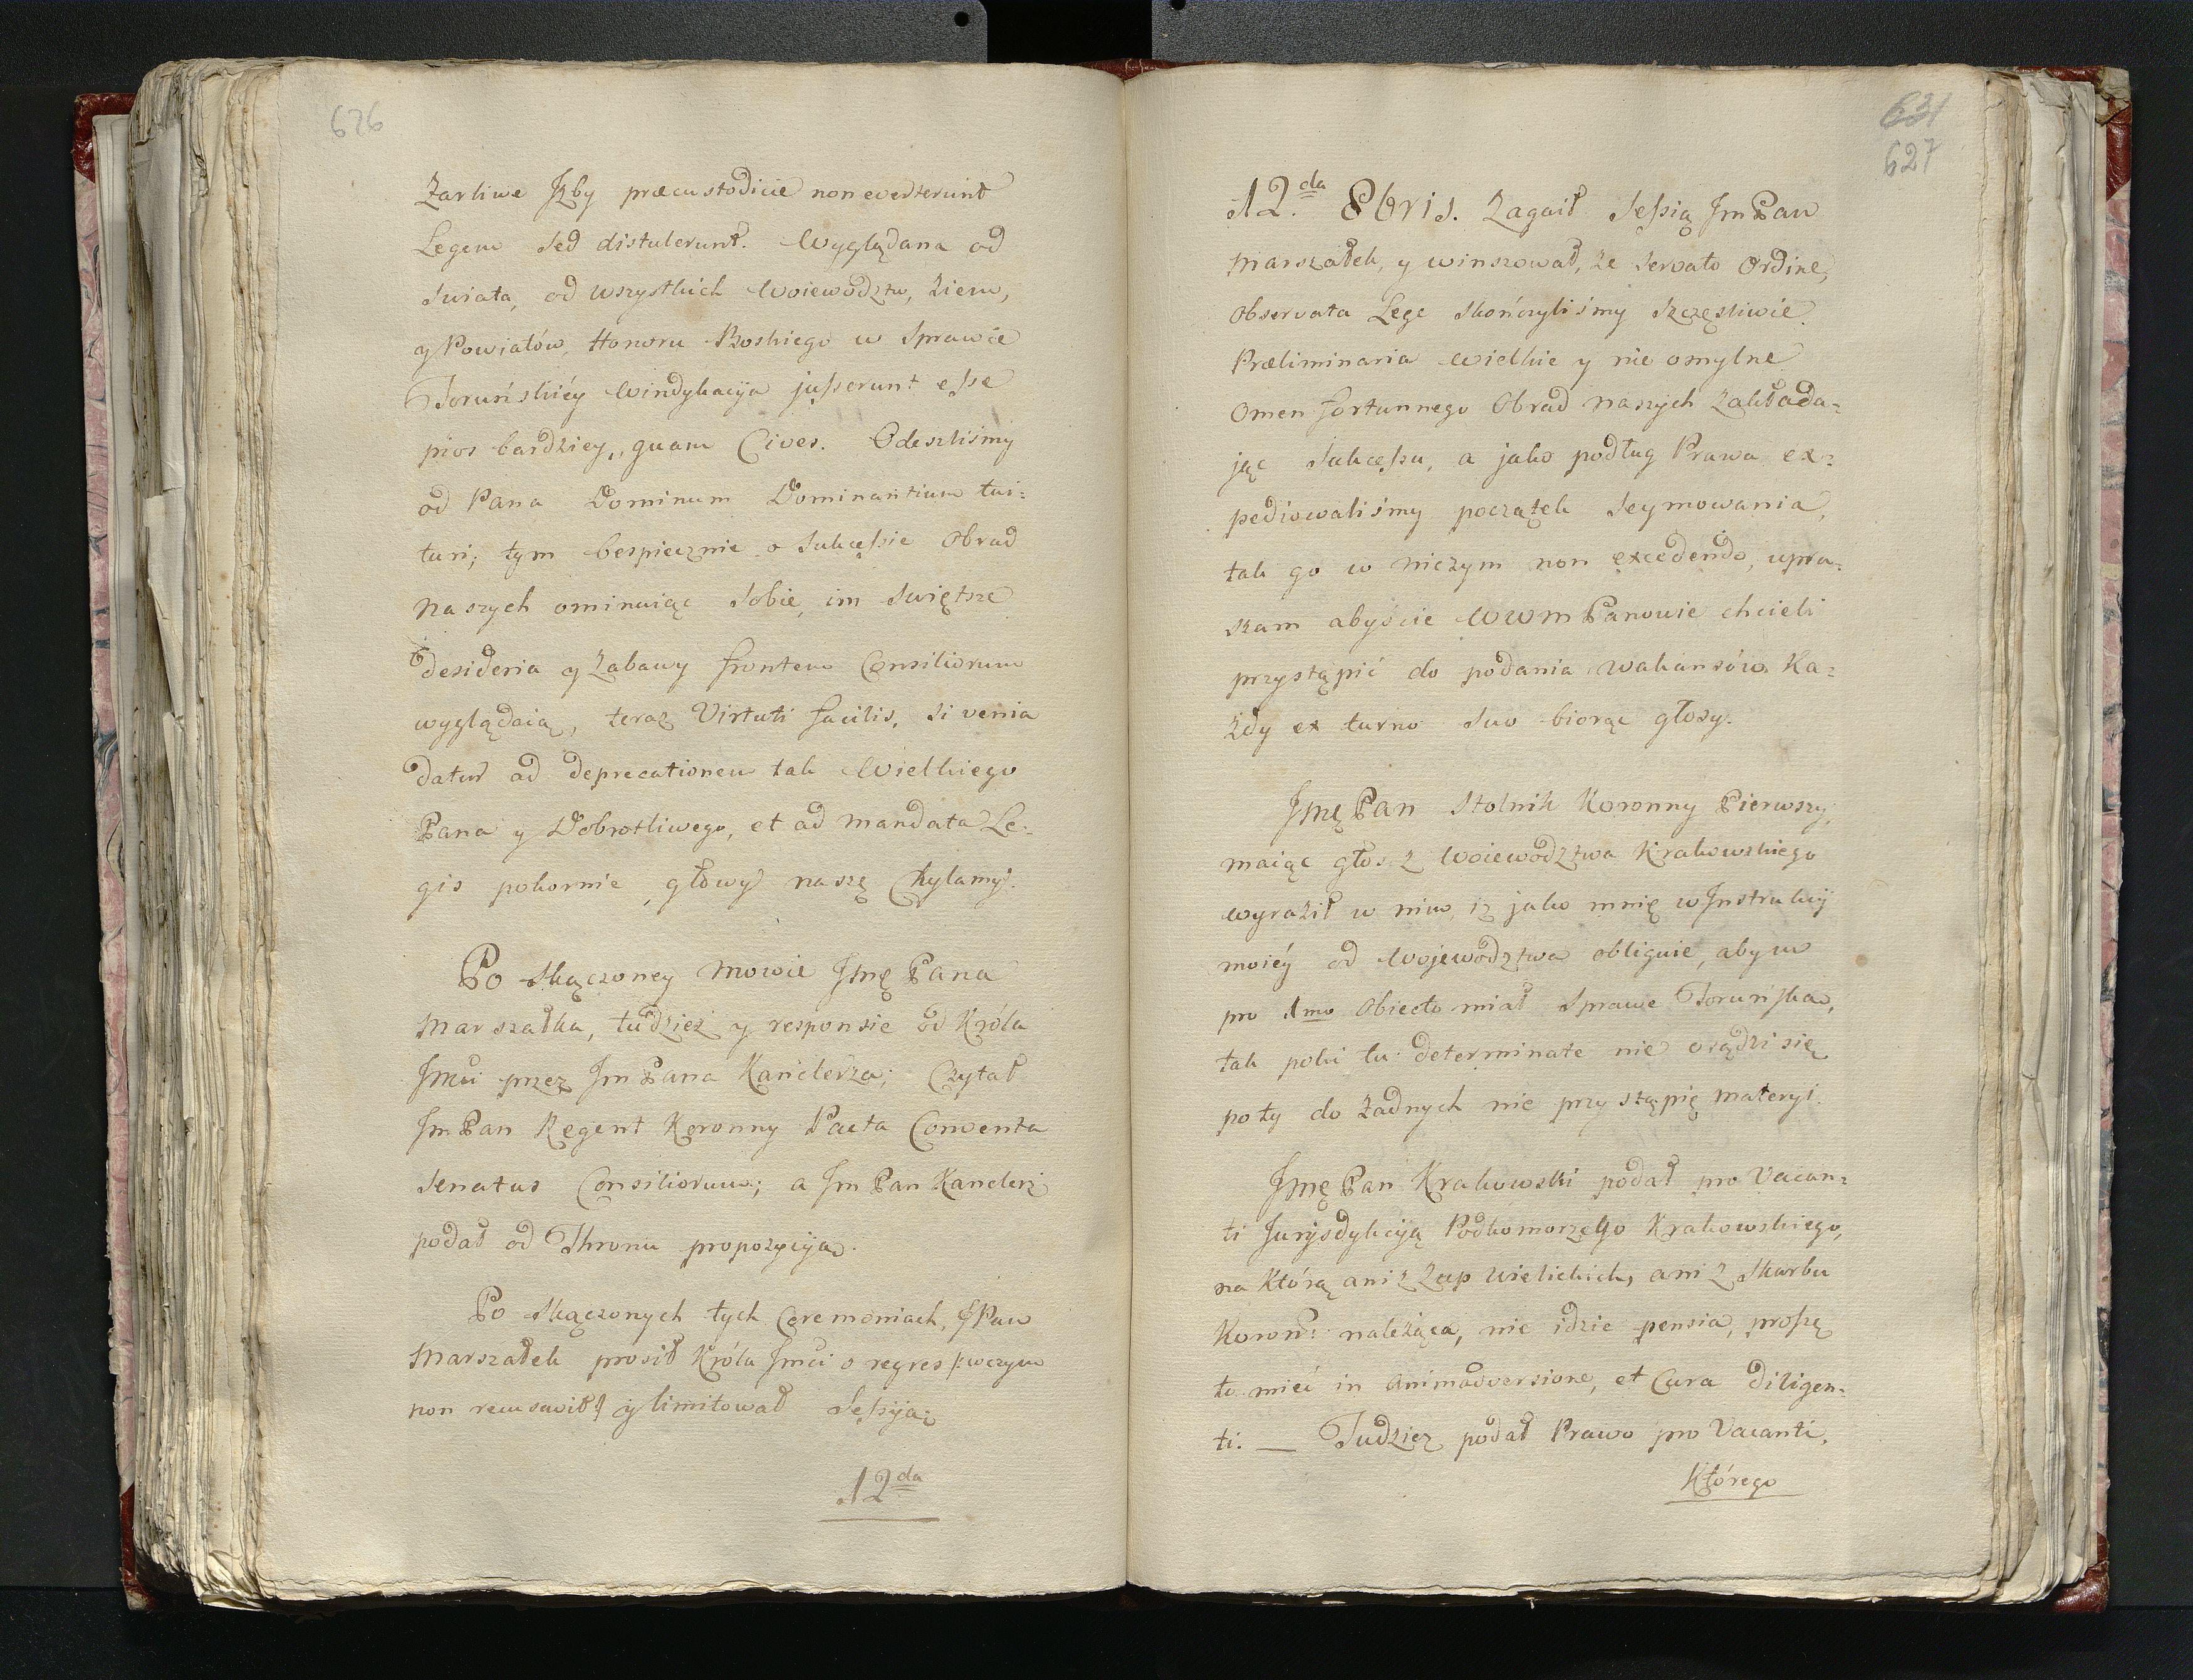 626
Zarliwe Jzby præcustodicie non everterunt
Legem Sed distulerunt. Wyglądana od
Swiata, od wszystkich Woiewodztw, Ziem,
y Powiatów, Honoru Boskiego w Sprawie
Toruńskiéy Windykacÿa jusserunt esse
pios bardziey, quam Cives. Odeszliśmy
od Pana Dominum Dominantium tui=
turi; tym bespiecznie o Sukcessie Obrad
naszych ominuiąc Sobie, im Swiętsze
desideria y Zabawy frontem Consiliorum
wyglądaią, teraz Virtuti facilis, si venia
datur ad deprecationem tak Wielkiego
Pana y Dobrotliwego, et ad mandata Le=
gis pokornie głowy naszę Chylamy.
Po Skączoney mowie Jmę Pana
Marszałka, tudzież y responsie od Króla
Jmci przez Jm Pana Kanclerza; Czytał
Jm Pan Regent Koronny Pacta Conventa
Senatus Consiliorum; a Jm Pan Kanclerz
podał od Thronu propozycÿa.
Po Skączonych tych Ceremoniach, JPan
Marszałek prosił Króla Jmci o regres /: w czym
non recusavit :/ y limitował Sessÿą;
12da
631
627
12.da 8bris. Zagaił Sessią Jm Pan
Marszałek, y winszował, że Servato Ordine,
Observata Lege Skończyliśmy Szczęsliwie
Præliminaria wielkie y nie omylne
Omen fortunnego Obrad naszych Zakłada=
jąc Sukcessu, a jako podług Prawa ex=
pediowaliśmy początek Seymowania,
tak go w niczym non excedendo, upra=
szam abyście WWm Panowie chcieli
przystąpić do podania wakansów Ka=
żdy ex turno Suo biorąc głosy.
Jmę Pan Stolnik Koronny Pierwszy,
maiąc głos z Woiewodztwa Krakowskiego
wyraził w nim, iz jako mnię w Jnstrukcÿ
moiéy od Wojewodztwa obliguie, abym
pro 1mo Obiecto miał Sprawe Toruńska,
tak poki tu determinate nie osądzi się
poty do żadnych nie przystąpię materyi.
Jmę Pan Krakowski podał pro Vacan=
ti Jurÿsdykcÿą Podkomorzego Krakowskiego,
na którą ani z Zup Wielickich, ani z Skarbu
Koron: należąca, nie idzie pensia, proszę
to mieć in animadversione, et Cura diligen=
ti. — Tudziez podał Prawo pro Vacanti,
Którego